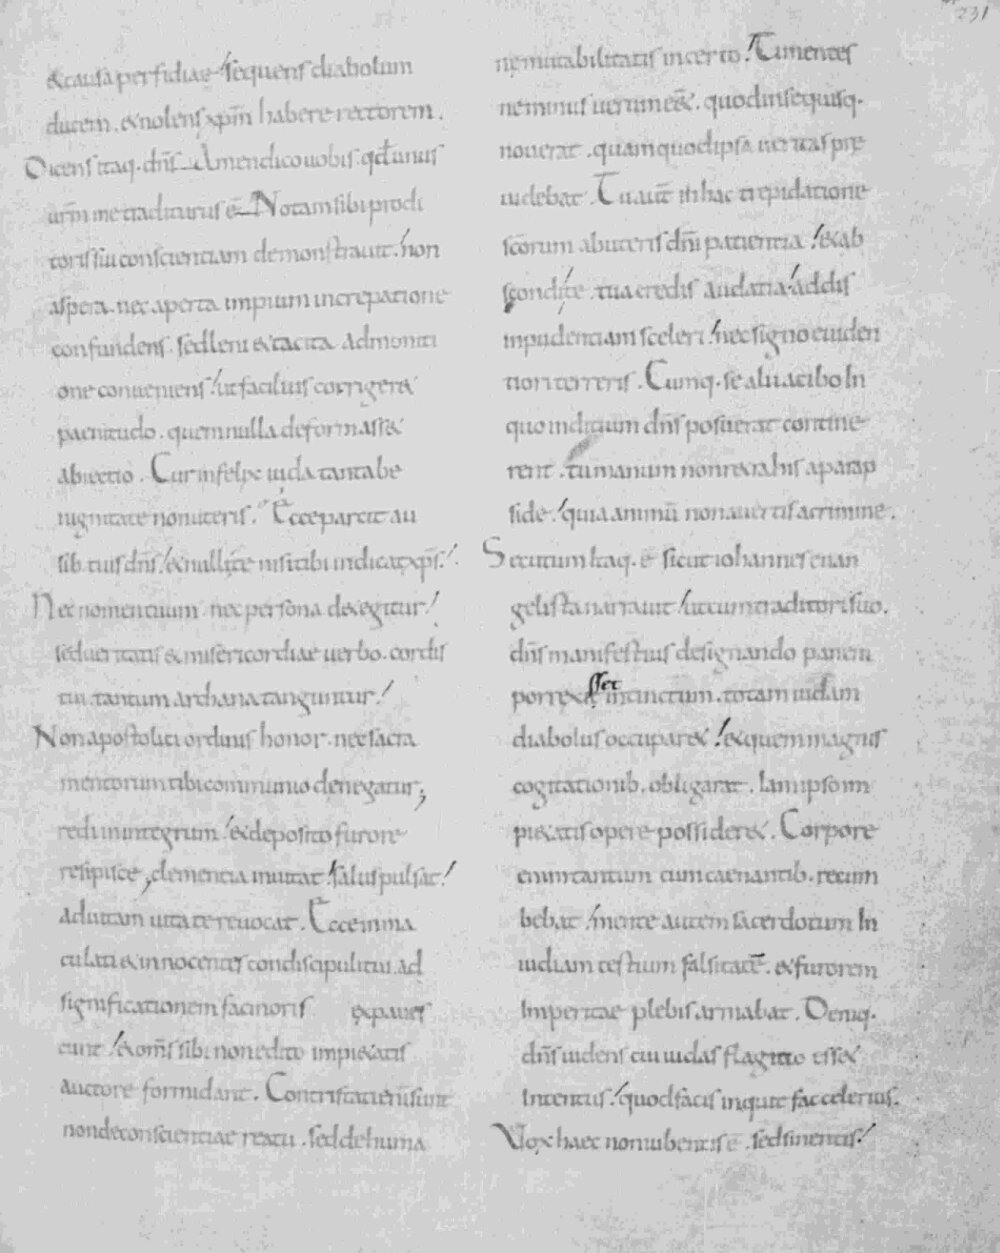 231
& causa perfidiae sequens diabolum
ducem. & nolens xp̄m habere rectorem.
Dicens itaq. dn̄s Amen dico uobis. qđ unus
urm̄ me traditurus ē Notam sibi prodi
toris sui conscientiam demonstrauit. non
aspera. nec aperta impium increpatione
confundens. sed leni & tacita admoniti
one conueniens! ut facilius corriger&
paenitudo. quem nulla deformass&
abiectio. Cur infelix iuda tanta be
nignitate non uteris. Ecce parcit au
sib. tuis dn̄s! & nulli te nisi tibi indicat xp̄s!
Nec nomen tuum. nec persona detegitur!
sed ueritatis & misericordiae uerbo. cordis
tui tantum archana tanguntur!
Non apostolici ordinis honor. nec sacra
mentorum tibi communio denegatur;
redi in integrum! & deposito furore
resipisce, clementia inuitat! salus pulsat!
ad uitam uita te reuocat. Ecce inma
culati & innocentes condiscipuli tui ad
significationem facinoris expaues
cunt! & om̄s sibi non edito impi&atis
auctore formidant. Contristati enim sunt
non de conscientiae reatu. sed de huma
ne mutabilitatis incerto! Timentes
ne minus uerum ēē&. quod in se quisq.
nouerat. quam quod ipsa ueritas pre
uidebat. Tu aut̄ in hac trepidatione
scōrum abuteris dn̄i patientia! & ab
scondi te tua credis audatia! addis
inpudentiam sceleri! nec signo euiden
tiori terreris. Cumq. se alii a cibo In
quo indicium dn̄s posuerat contine
rent. tu manum non retrahis a parap
side! quia animū non auertis a crimine.
Secutum Itaq. ē sicut iohannes euan
gelista narrauit! ut cum traditori suo.
dn̄s manifestius designando panem
porrex& sset intinctum. totam iudam
diabolus occupar&! & quem magnis
cogitationib. obligarat. Iam ipso im
pi&atis opere possider&. Corpore
enim tantum cum caenantib. recum
bebat! mente autem sacerdotum In
uidiam testium falsitatē. & furorem
Imperitae plebis armabat. Deniq.
dn̄s uidens cui iudas flagitio ess&
Intentus! quod facis inquit fac celerius.
Uox haec non iubentis ē. sed sinentis!